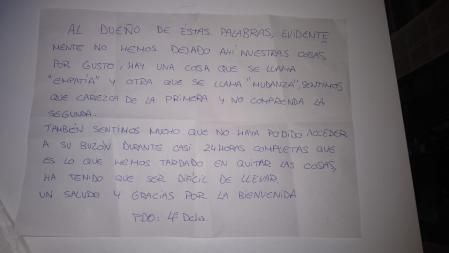 AL DUEÑO DE ÉSTAS PALABRAS, EVIDENTE
MENTE NO HEMOS DEJADO AHÍ NUESTRAS COSAS
POR GUSTO, HAY UNA COSA QUE SE LLAMA
"EMPATÍA" Y OTRA QUE SE LLAMA "MUDANZA", SENTIMOS
QUE CAREZCA DE LA PRIMERA Y NO COMPRENDA LA
SEGUNDA.
TAMBIÉN SENTIMOS MUCHO QUE NO HAYA PODIDO ACCEDER
A SU BUZÓN DURANTE CASI 24 HORAS COMPLETAS QUE
ES LO QUE HEMOS TARDADO EN QUITAR LAS COSAS,
HA TENIDO QUE SER DIFÍCIL DE LLEVAR.
UN SALUDO Y GRACIAS POR LA BIENVENIDA
FDO: 4º Dcha.